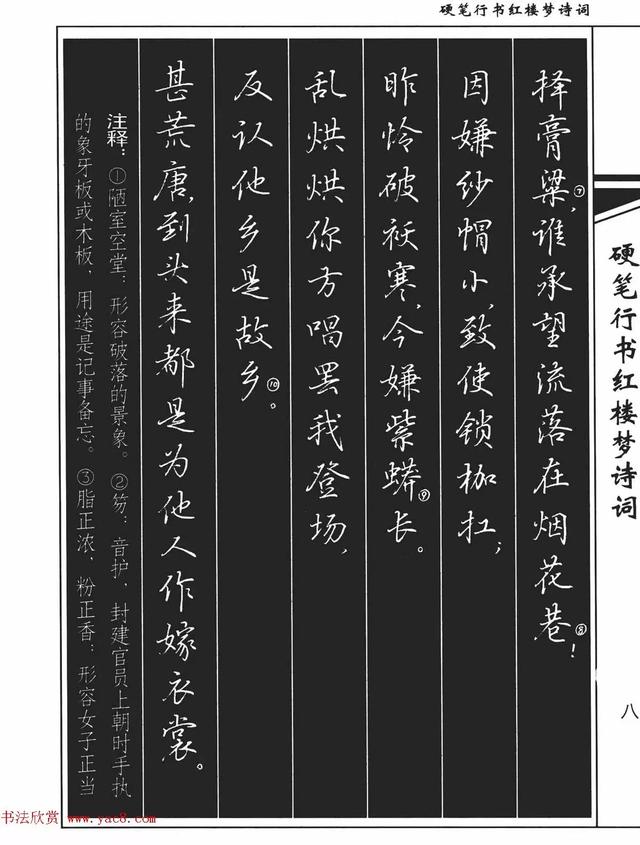 硬笔行书红楼梦诗词
择膏粱⑦,谁承望流落在烟花巷⑧!
因嫌纱帽小,致使锁枷扛;
昨怜破袄寒,今嫌紫蟒⑨长。
乱烘烘你方唱罢我登场,
反认他乡是故乡⑩。
甚荒唐,到头来都是为他人作嫁衣裳。
注释:①陋室空堂:形容破落的景象。②笏:音护,封建官员上朝时手执
的象牙板或木板,用途是记事备忘。③脂正浓,粉正香:形容女子正当
硬笔行书红楼梦诗词
八
书法欣赏 www.yac8.com